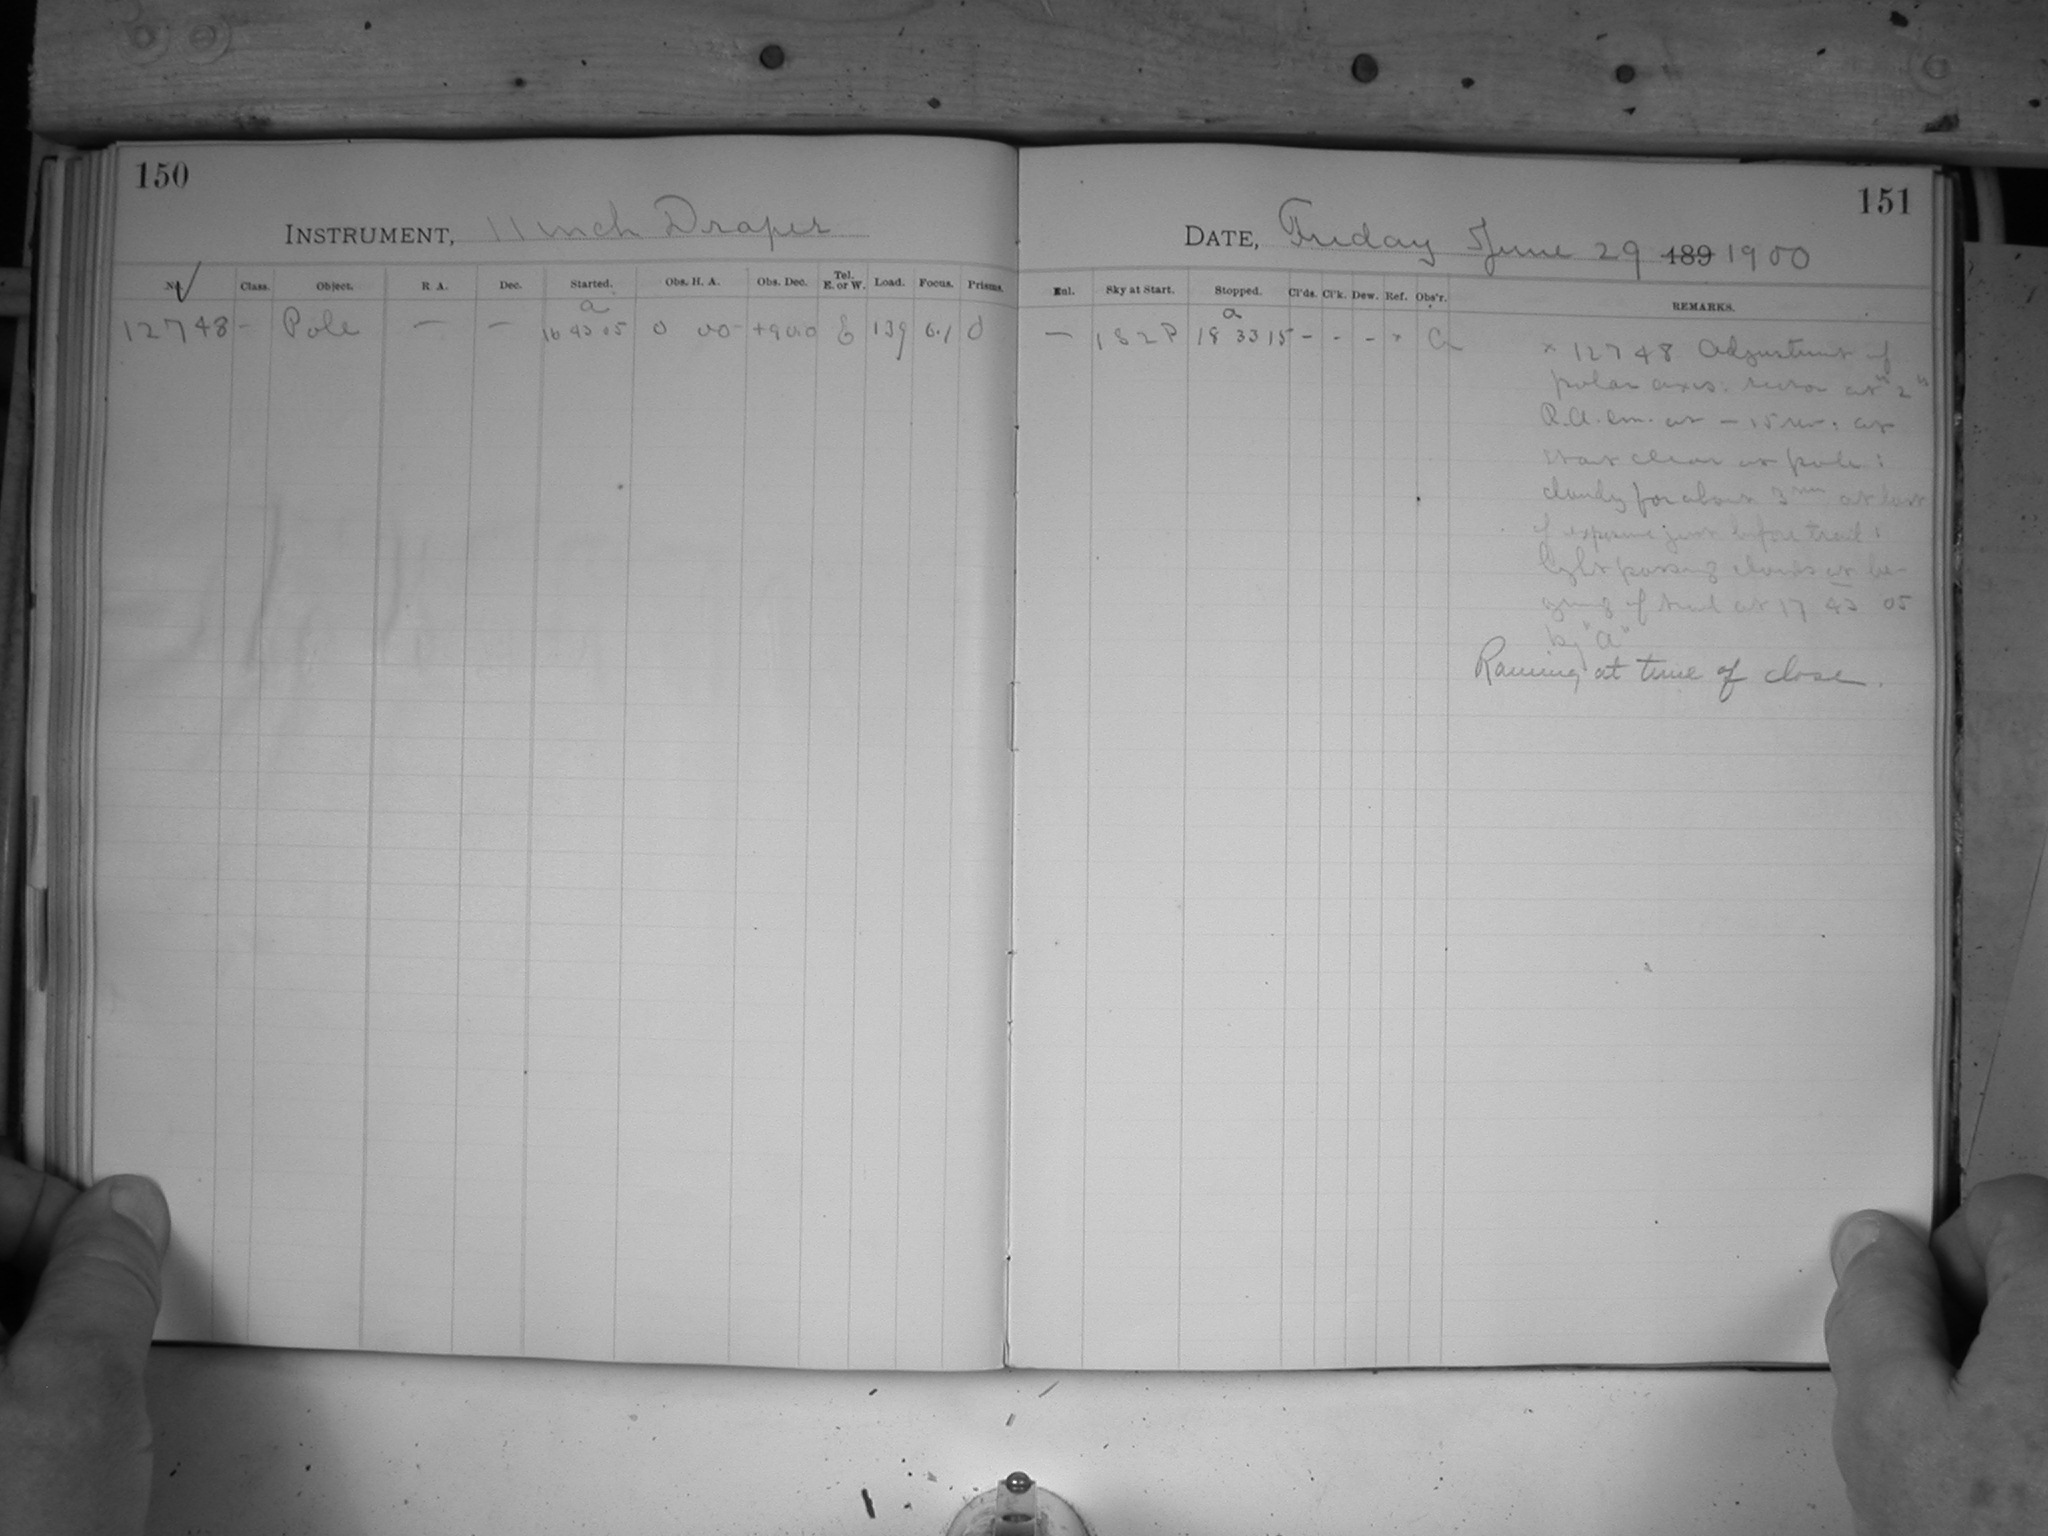 150
INSTRUMENT, 11 inch Draper
No. Class. Object. R A. Dec. Started. Obs. H. A. Obs. Dec. Tel. E. or W. Load. Focus. Prisms.
a
12748 - Pole — — 16 43 05 0 00 +90.0 E 139 6.1 0
151
DATE, Friday June 29 189 1900
Enl. Sky at Start. Stopped. Cl'ds. Cl'k. Dew. Ref. Obs'r. REMARKS.
a
— 182P 18 33 15 - - - × a
× 12748 Adjustment of
polar axis: at "2"
R.A. at - 15 : at
start clear at pole :
cloudy for about 3 m at last
of exposure just before trail :
Light passing clouds at be-
ging of trail at 17 43 05
by "a"
Raining at time of close.